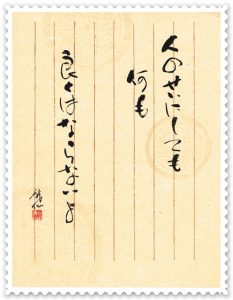 人のせいにしても
何も
良くはならないよ